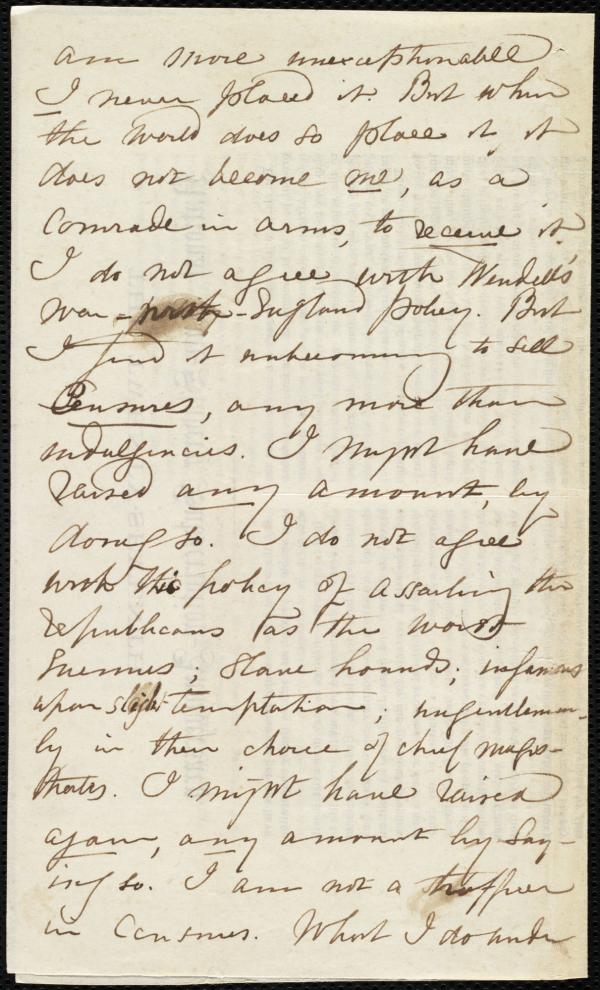 am more unexceptionable
I never placed it. But when
the world does so place it, it
does not become me, as a
Comrade in arms, to receive it.
I do not agree with Wendell's
war - - England policy. But
I find it unbecoming to sell
Censures, any more than
indulgencies. I might have
raised any amount, by
doing so. I do not agree
with this policy of assailing the
republicans as the worst
Enemies; Slave hounds; infamous
upon slight temptation; ungentleman-
ly in their choice of chief magis-
trates. I might have raised
again, any amount by say-
ing so. I am not a trafficer
in Censures. What I do under